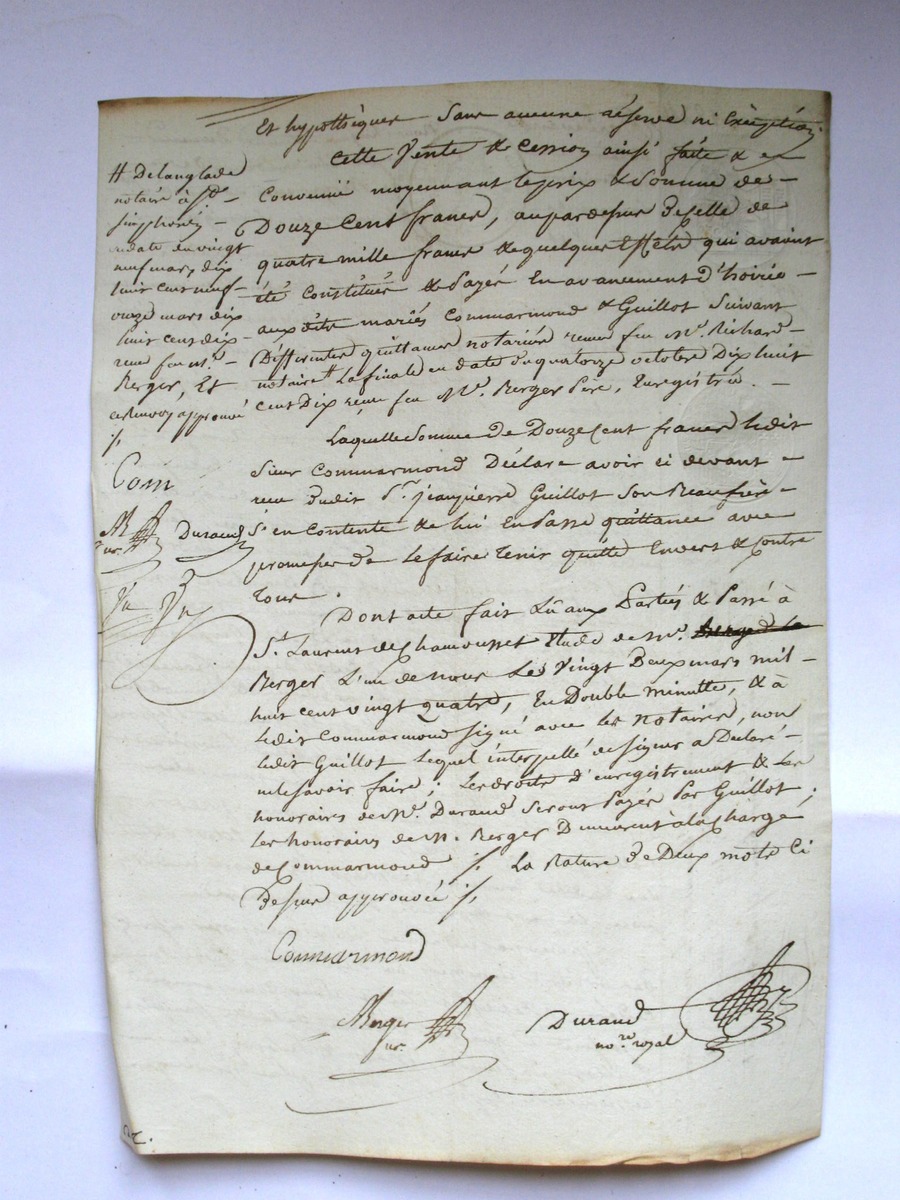 Et hypothèques sans aucune réserve ni Exception,
Cette Vente & Cession ainsi faite &
Convenue moyennant le prix & Somme de –
Douze Cent francs, aupardessus de celle de
quatre mille francs & quelques Effets qui avaient
été Constitués & Payés En avancement d'hoirie –
aux dits mariés Commarmond & Guillot Suivant
Différentes quittances notariées reçues feu Me. Richard –
notaire # La finale en date du quatorze octobre Dix huit
cent Dix reçue feu Me. Berger Père, Enregistrée. –
# Delanglade
notaire à St. –
Simphorien –
en date du vingt
neuf mars dix
huit cent neuf –
onze mars dix
huit cent dix –
reçue feu Me. –
Berger, Et
ce Renvoy approuvé
./.
Com
Durand
Laquelle Somme de Douze Cent francs Ledit
Sieur Commarmond Déclare avoir ci devant –
reçu dudit Sr. jean pierre Guillot Son Beaufrère –
S'en Contente & lui En Passe quittance avec
promesse de Le faire Tenir quitte Envers & Contre
Tous.
Dont acte fait Lû aux Parties & Passé à
St. Laurent de Chamousset Etude de Me.
Berger L'un de nous Le Vingt Deux mars mil –
huit cent vingt quatre, En Double minutte, & à
Ledit Commarmond Signé avec les Notaires, non
Ledit Guillot Lequel interpellé de signer a Déclaré –
ne le Savoir faire; Les droits d'enregistrement & Les
honoraires de Me. Durand Seront Payés Par Guillot;
Les honoraires de M. Berger Demeurent à la Charge
de Commarmond ./. La Rature De Deux mots Ci
Dessus approuvée ./.
Commarmond
Berger
Durand
nore. royal